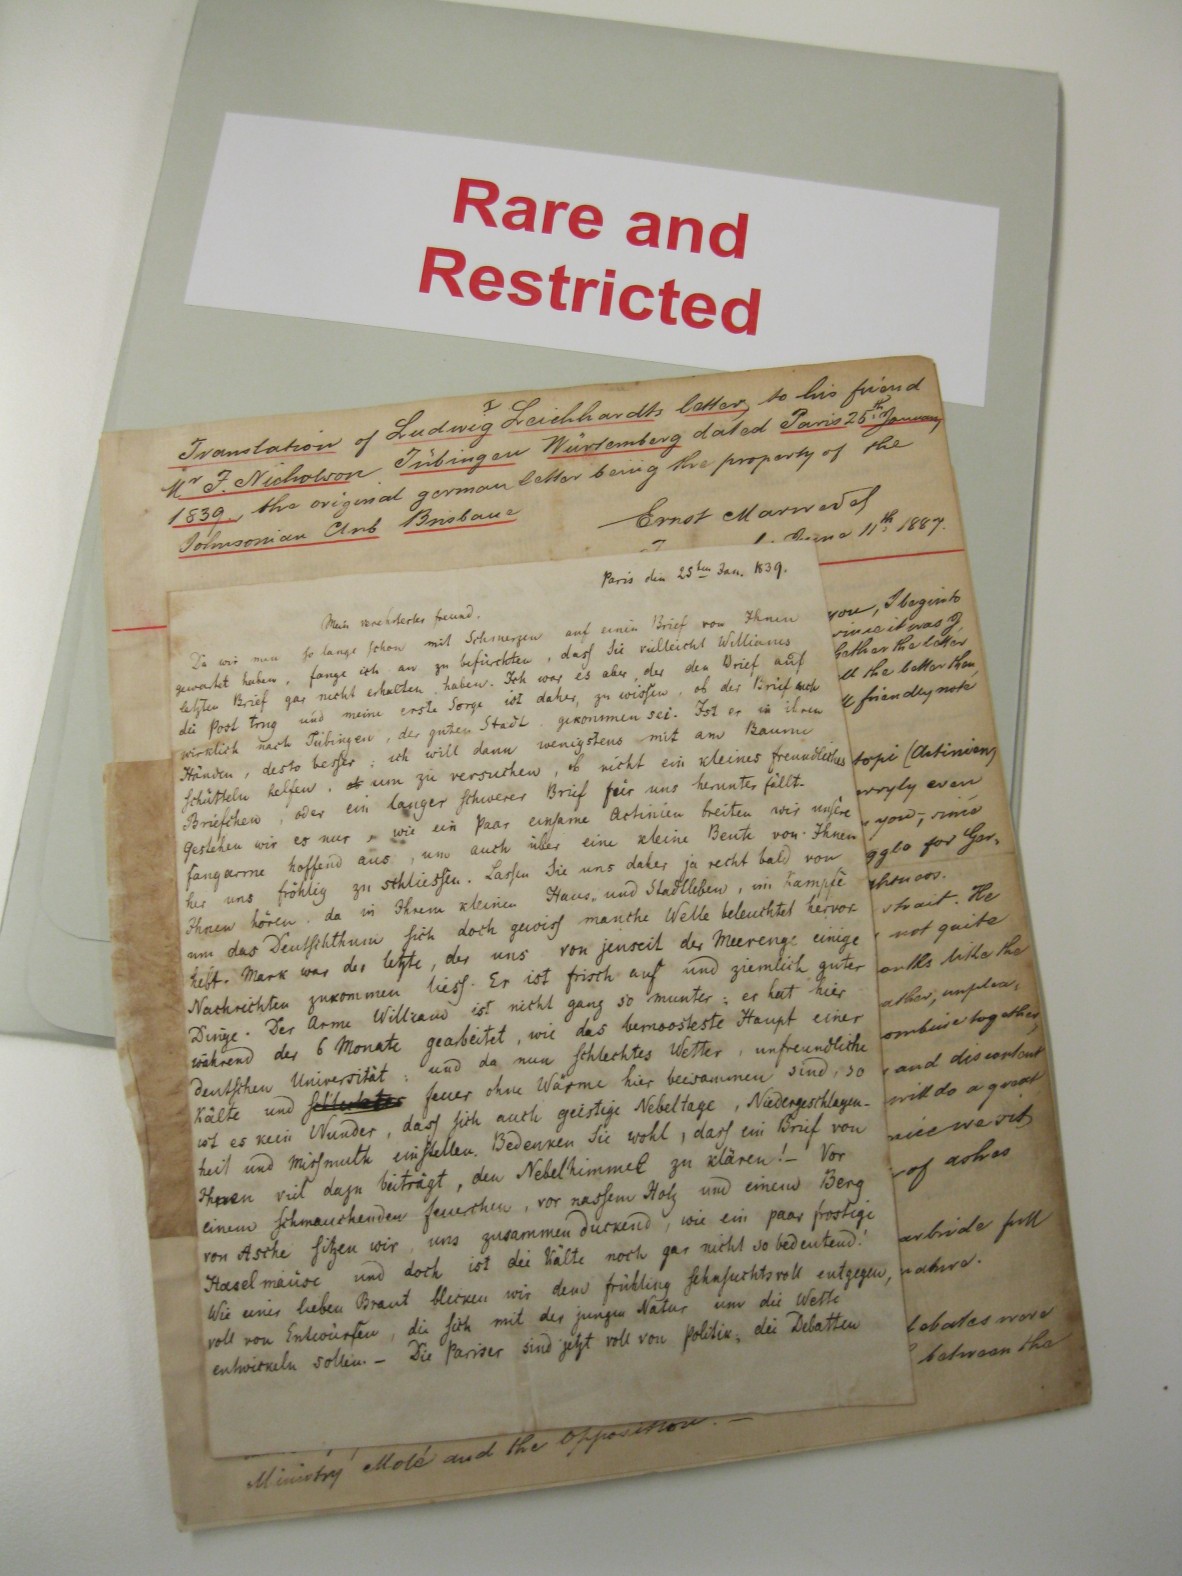 Rare and
Restricted
Translation of Ludwig Leichhardts letter, to his friend
Mr F. Nicholson Tübingen Würtemberg dated Paris 25th January
1839, the original german letter being the property of the
Johnsonian Club Brisbane
Ernst Marwedel
June 11th 1887.
Paris den 25ten Jan. 1839.
Mein verehrtester freund.
Da wir nun so lange schon mit Schmerzen auf einen Brief von Ihnen
gewartet haben, fange ich an zu befürchten, dass Sie vielleicht Williams
letzten Brief gar nicht erhalten haben. Ich war es aber, der den Brief auf
die Post trug und meine erste Sorge ist daher, zu wissen, ob der Brief auch
wirklich nach Tübingen, der guten Stadt, gekommen sei. Ist er in ihren
Händen, desto besser; ich will dann wenigstens mit am Baume
schütteln helfen, um zu versuchen, ob nicht ein kleines freundliches
Briefchen, oder ein langer schwerer Brief für uns herunter fällt.
Gestehen wir es nur, wie ein paar einsame Actinien breiten wir unsere
fangarme hoffend aus, um auch über eine kleine Beute von Ihnen
her uns fröhlig zu schliessen. Lassen Sie uns daher ja recht bald von
Ihnen hören, da in Ihrem kleinen Haus- und Stadtleben, im Kampfe
um das Deutschthum sich doch gewiss manche Welle beleuchtet hervor
hebt. Mark war der letzte, der uns von jenseit der Meerenge einige
Nachrichten zukommen liess. Er ist frisch auf und ziemlich guter
Dinge. Der Arme William ist nicht ganz so munter; er hat hier
während der 6 Monate gearbeitet, wie das bemoosteste Haupt einer
deutschen Universität; und da nun schlechtes Wetter, unfreundliche
Kälte und feuer ohne Wärme hier beisammen sind, so
ist es kein Wunder, dass sich auch geistige Nebeltage, Niedergeschlagen-
heit und Missmuth einstellen. Bedenken Sie wohl, dass ein Brief von
Ihnen viel dazu beiträgt, den Nebelhimmel zu klären! — Vor
einem schmauchenden feuerchen, vor nassem Holz und einem Berg
von Asche sitzen wir, uns zusammenduckend, wie ein paar frostige
Haselmäuse und doch ist die Kälte noch gar nicht so bedeutend!
Wie einer lieben Braut blicken wir dem frühling sehnsuchtsvoll entgegen,
voll von Entwürfen, die sich mit der jungen Natur um die Wette
entwickeln sollen. — Die Pariser sind jetzt voll von Politik, die Debatten
you, I begin to
since it was I,
gether the letter
ll the better then
friendly note
topi (Actinien)
even
you, since
ggle for Ger-
strait. He
not quite
onths like the
ather, unplea-
ombine together,
and discontent
will do a great
nice we sit
of ashes
bride full
nature.
debates were
between the
Ministry Molé and the opposition. —